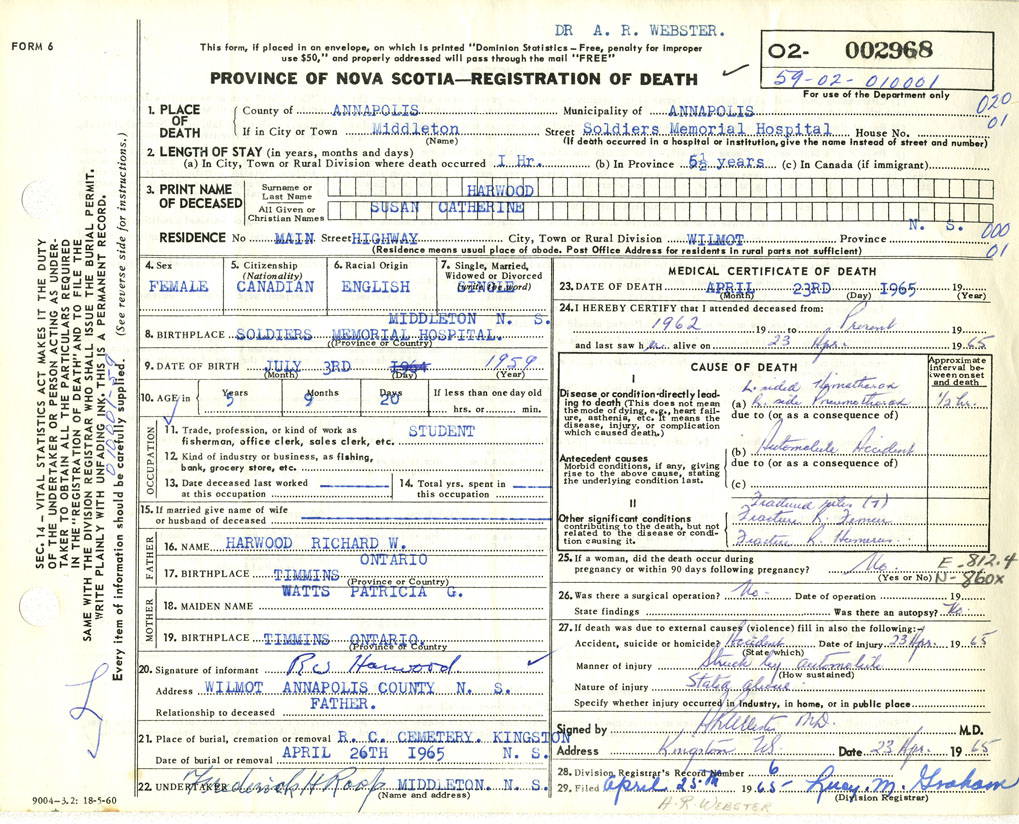 DR A. R. WEBSTER.
FORM 6
This form, if placed in an envelope, on which is printed "Dominion Statistics – Free, penalty for improper
use $50," and properly addressed will pass through the mail "FREE"
O2- 002968
59-02-010001
For use of the Department only
PROVINCE OF NOVA SCOTIA—REGISTRATION OF DEATH
020
01
1. PLACE OF DEATH
County of ANNAPOLIS Municipality of ANNAPOLIS
If in City or Town Middleton Street Soldiers Memorial Hospital House No.
(Name) (If death occurred in a hospital or institution, give the name instead of street and number)
2. LENGTH OF STAY (in years, months and days)
(a) In City, Town or Rural Division where death occurred I Hr. (b) In Province 5½ years (c) In Canada (if immigrant)
3. PRINT NAME OF DECEASED
Surname or Last Name HARWOOD
All Given or Christian Names SUSAN CATHERINE
RESIDENCE No MAIN Street HIGHWAY City, Town or Rural Division WILMOT Province N. S.
000
01
(Residence means usual place of abode. Post Office Address for residents in rural parts not sufficient)
4. Sex
FEMALE
5. Citizenship (Nationality)
CANADIAN
6. Racial Origin
ENGLISH
7. Single, Married, Widowed or Divorced (write the word)
SINGLE
8. BIRTHPLACE SOLDIERS MEMORIAL HOSPITAL. MIDDLETON N. S.
(Province or Country)
9. DATE OF BIRTH JULY 3RD 1964 1959
(Month) (Day) (Year)
10. AGE in Years 5 Months 9 Days 20 If less than one day old
hrs. or min.
OCCUPATION
11. Trade, profession, or kind of work as fisherman, office clerk, sales clerk, etc. STUDENT
12. Kind of industry or business, as fishing, bank, grocery store, etc.
13. Date deceased last worked at this occupation
14. Total yrs. spent in this occupation
15. If married give name of wife or husband of deceased
FATHER
16. NAME HARWOOD RICHARD W.
17. BIRTHPLACE TIMMINS ONTARIO
(Province or Country)
MOTHER
18. MAIDEN NAME WATTS PATRICIA G.
19. BIRTHPLACE TIMMINS ONTARIO,
(Province or Country)
20. Signature of informant R.W. Harwood
Address WILMOT ANNAPOLIS COUNTY N. S.
Relationship to deceased FATHER.
21. Place of burial, cremation or removal R. C. CEMETERY. KINGSTON N. S.
Date of burial or removal APRIL 26TH 1965
22. UNDERTAKER Frederick H Roop MIDDLETON. N. S.
(Name and address)
9004–3.2: 18-5-60
MEDICAL CERTIFICATE OF DEATH
23. DATE OF DEATH APRIL 23RD 1965 19
(Month) (Day) (Year)
24. I HEREBY CERTIFY that I attended deceased from:
1962 19 to Present 19
and last saw her alive on 23 Apr. 1965
CAUSE OF DEATH
Approximate interval between onset and death
I
Disease or condition directly leading to death (This does not mean the mode of dying, e.g., heart failure, asthenia, etc. It means the disease, injury, or complication which caused death.)
L. sided
(a) R. side ½ hr.
due to (or as a consequence of)
Antecedent causes
Morbid conditions, if any, giving rise to the above cause, stating the underlying condition last.
(b) Automobile Accident
due to (or as a consequence of)
(c)
II
Other significant conditions
contributing to the death, but not related to the disease or condition causing it.
Fractured
Fracture R. Femur
Fracture R Humerus
25. If a woman, did the death occur during pregnancy or within 90 days following pregnancy? No.
(Yes or No)
E-812.4
N-860X
26. Was there a surgical operation? No. Date of operation 19
State findings Was there an autopsy? No.
27. If death was due to external causes (violence) fill in also the following:–
Accident, suicide or homicide? Accident Date of injury 23 Apr. 1965
(State which)
Manner of injury Struck by automobile
(How sustained)
Nature of injury Stated above
Specify whether injury occurred in industry, in home, or in public place
Signed by M.D. M.D.
Address Kingston Date 23 Apr. 1965
28. Division Registrar's Record Number 6
29. Filed April 25th 1965 Lucy M. Graham
(Division Registrar)
H.R. WEBSTER
SEC. 14 – VITAL STATISTICS ACT MAKES IT THE DUTY
OF THE UNDERTAKER OR PERSON ACTING AS UNDER-
TAKER TO OBTAIN ALL THE PARTICULARS REQUIRED
IN THE "REGISTRATION OF DEATH" AND TO FILE THE
SAME WITH THE DIVISION REGISTRAR WHO SHALL ISSUE THE BURIAL PERMIT.
WRITE PLAINLY WITH UNFADING INK. THIS IS A PERMANENT RECORD.
Every item of information should be carefully supplied. (See reverse side for instructions.)